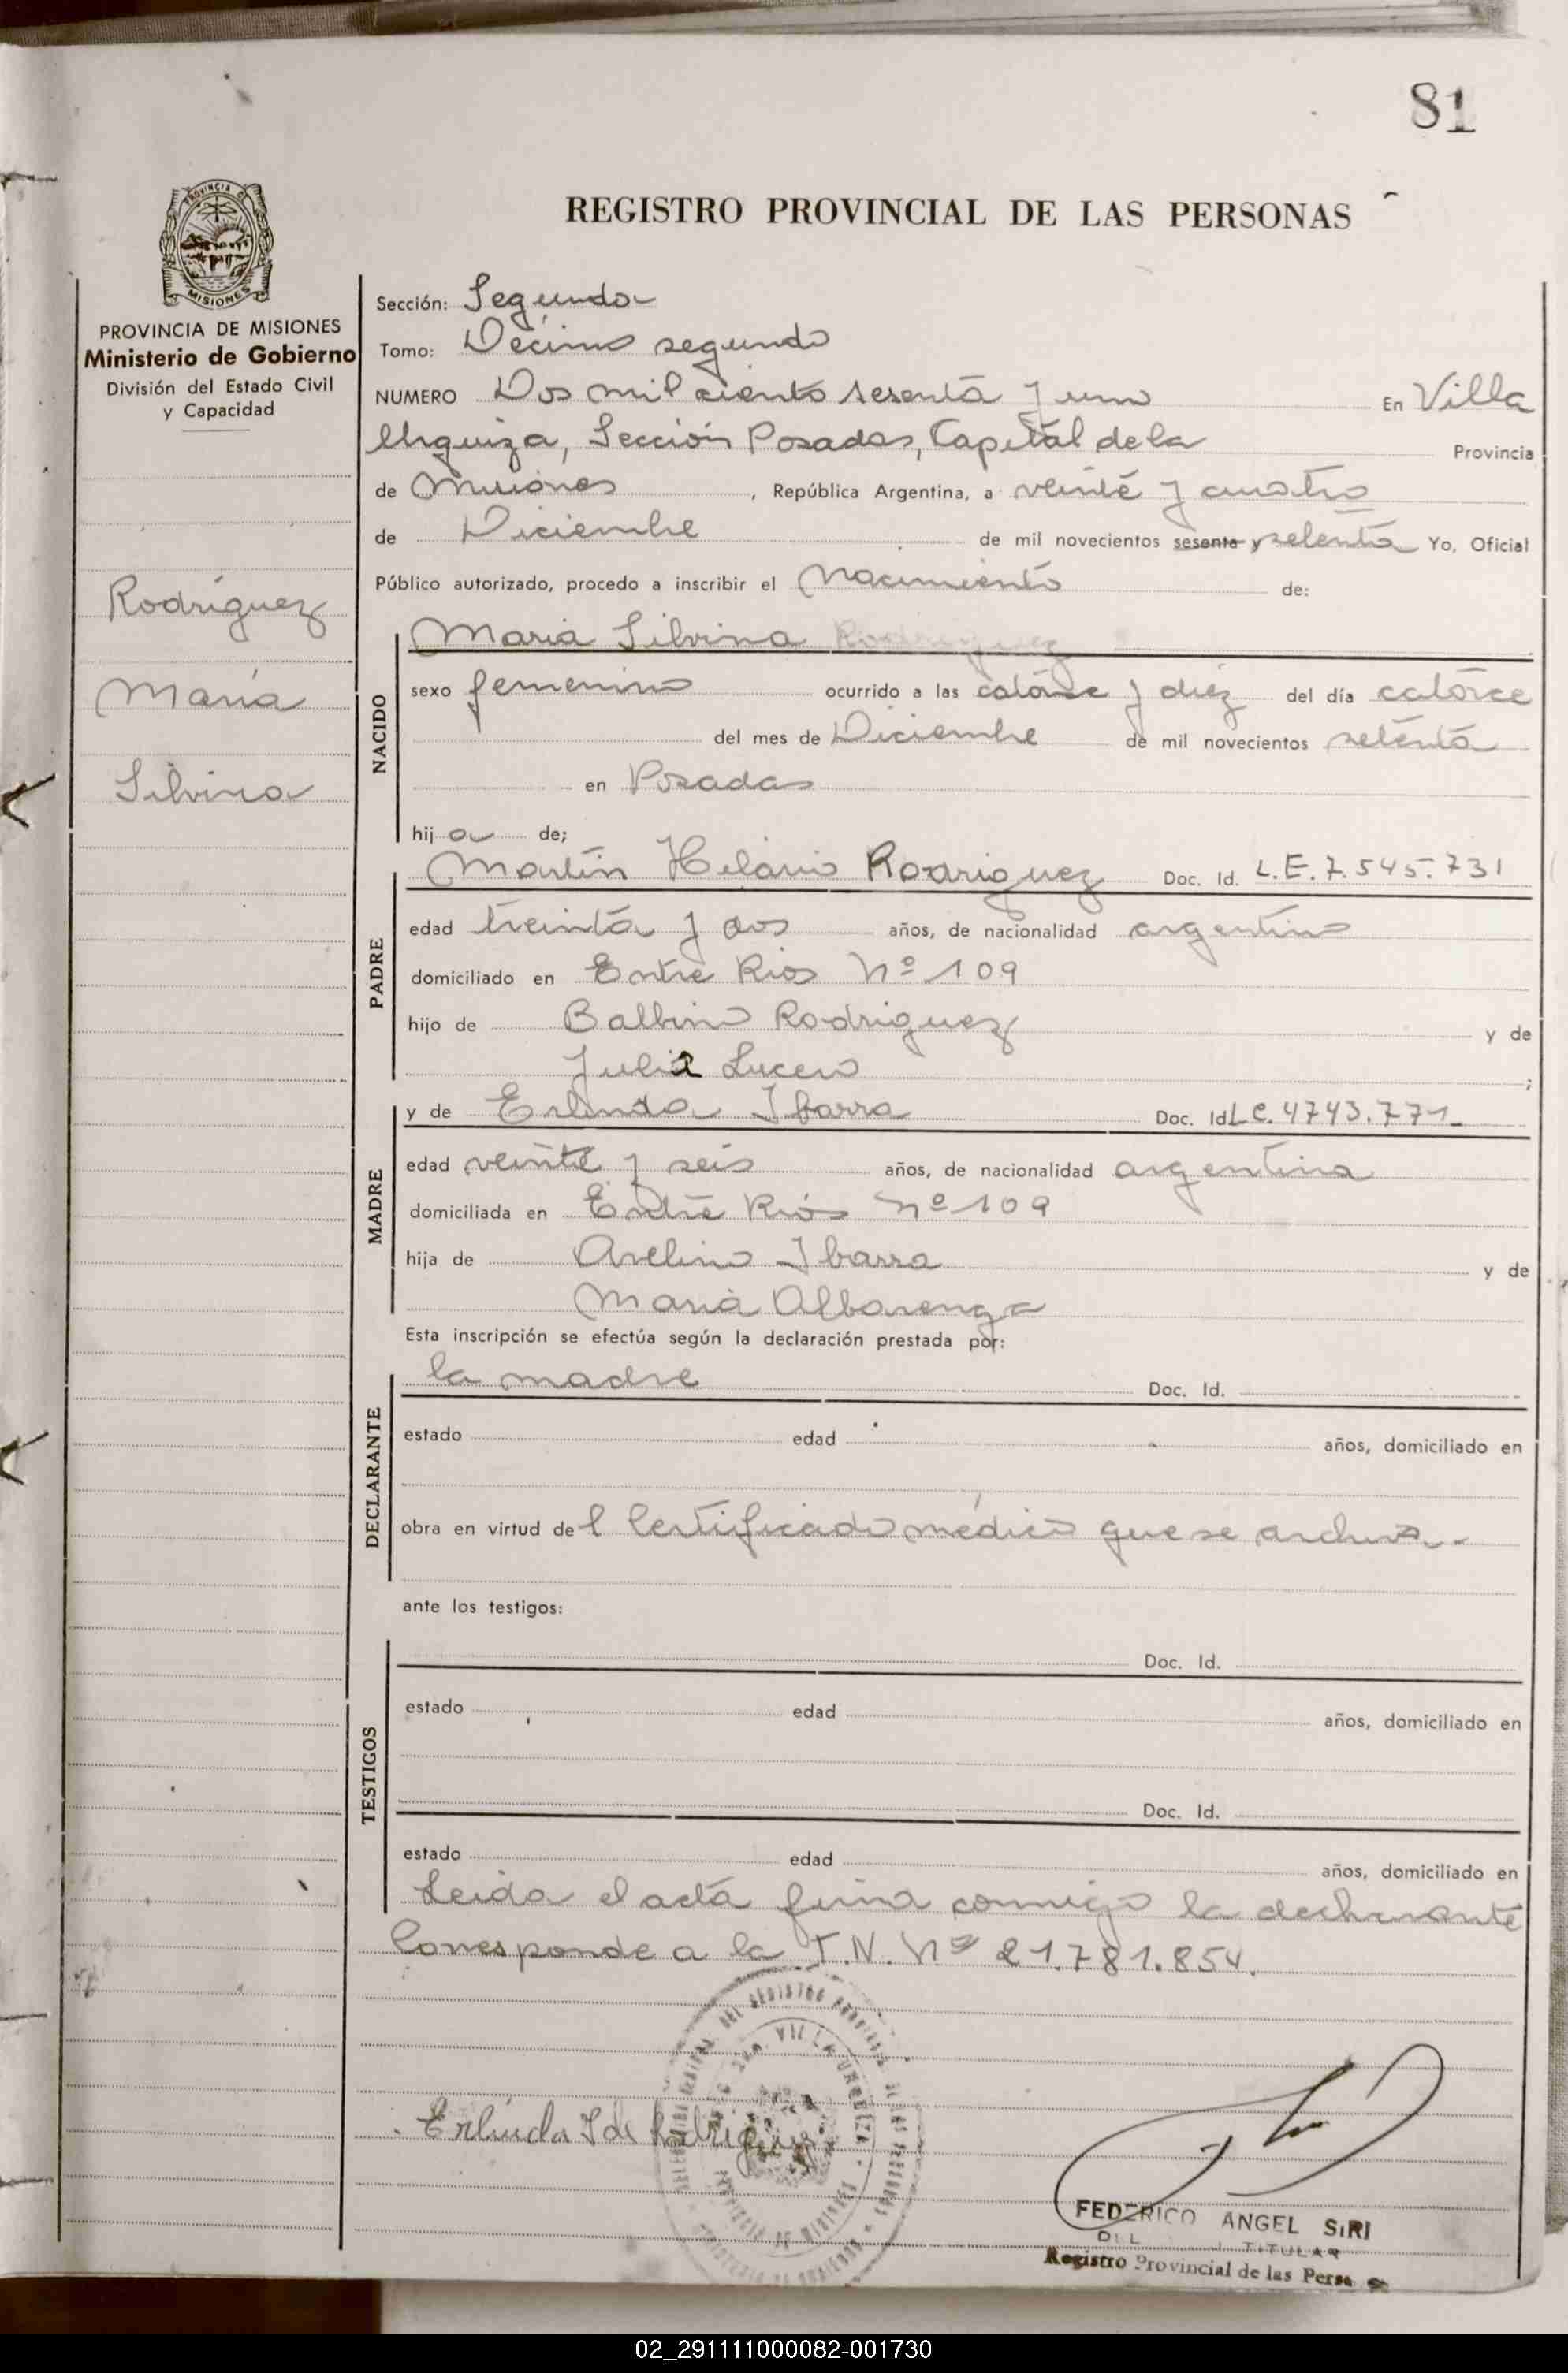 81
REGISTRO PROVINCIAL DE LAS PERSONAS
PROVINCIA DE MISIONES
Ministerio de Gobierno
División del Estado Civil
y Capacidad
Rodríguez
María
Silvina
Sección: Segunda
Tomo: Décimo segundo
NUMERO Dos mil ciento sesenta y uno En Villa
Urquiza, Sección Posadas, Capital de la Provincia
de Misiones, República Argentina, a veinte y cuatro
de Diciembre de mil novecientos sesenta y setenta Yo, Oficial
Público autorizado, procedo a inscribir el Nacimiento de:
NACIDO
María Silvina Rodriguez
sexo femenino ocurrido a las catorce y diez del día catorce
del mes de Diciembre de mil novecientos setenta
en Posadas
hij a de;
PADRE
Martín Hilario Rodriguez Doc. Id. L.E. 7.545.731
edad treinta y dos años, de nacionalidad argentino
domiciliado en Entre Rios Nº 109
hijo de Balbino Rodriguez y de
Julia Lucero ;
MADRE
y de Erlinda Ibarra Doc. Id L.C. 4743.771_
edad veinte y seis años, de nacionalidad argentina
domiciliada en Entre Rios nº 109
hija de Avelino Ibarra y de
María Albarenga
Esta inscripción se efectúa según la declaración prestada por:
DECLARANTE
la madre Doc. Id.
estado edad años, domiciliado en
obra en virtud del Certificado médico que se archiva.-
ante los testigos:
TESTIGOS
Doc. Id.
estado edad años, domiciliado en
Doc. Id.
estado edad años, domiciliado en
Leida el acta firma conmigo la declarante
Corresponde a la T.N. Nº 21.781.854.
VILLA URQUIZA
PROVINCIA DE MISIONES
Erlinda I de Rodriguez
FEDERICO ANGEL SIRI
TITULAR
Registro Provincial de las Perso
02_291111000082-001730